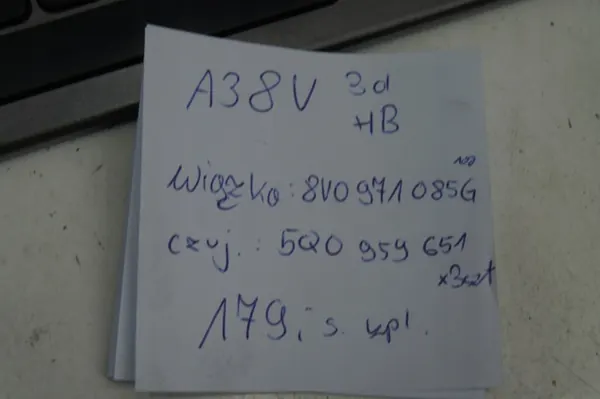 A38V 3d
HB
Wiązka: 8V0 971 085G
czuj.: 5Q0 959 651
x3szt
179,- s. kpl.